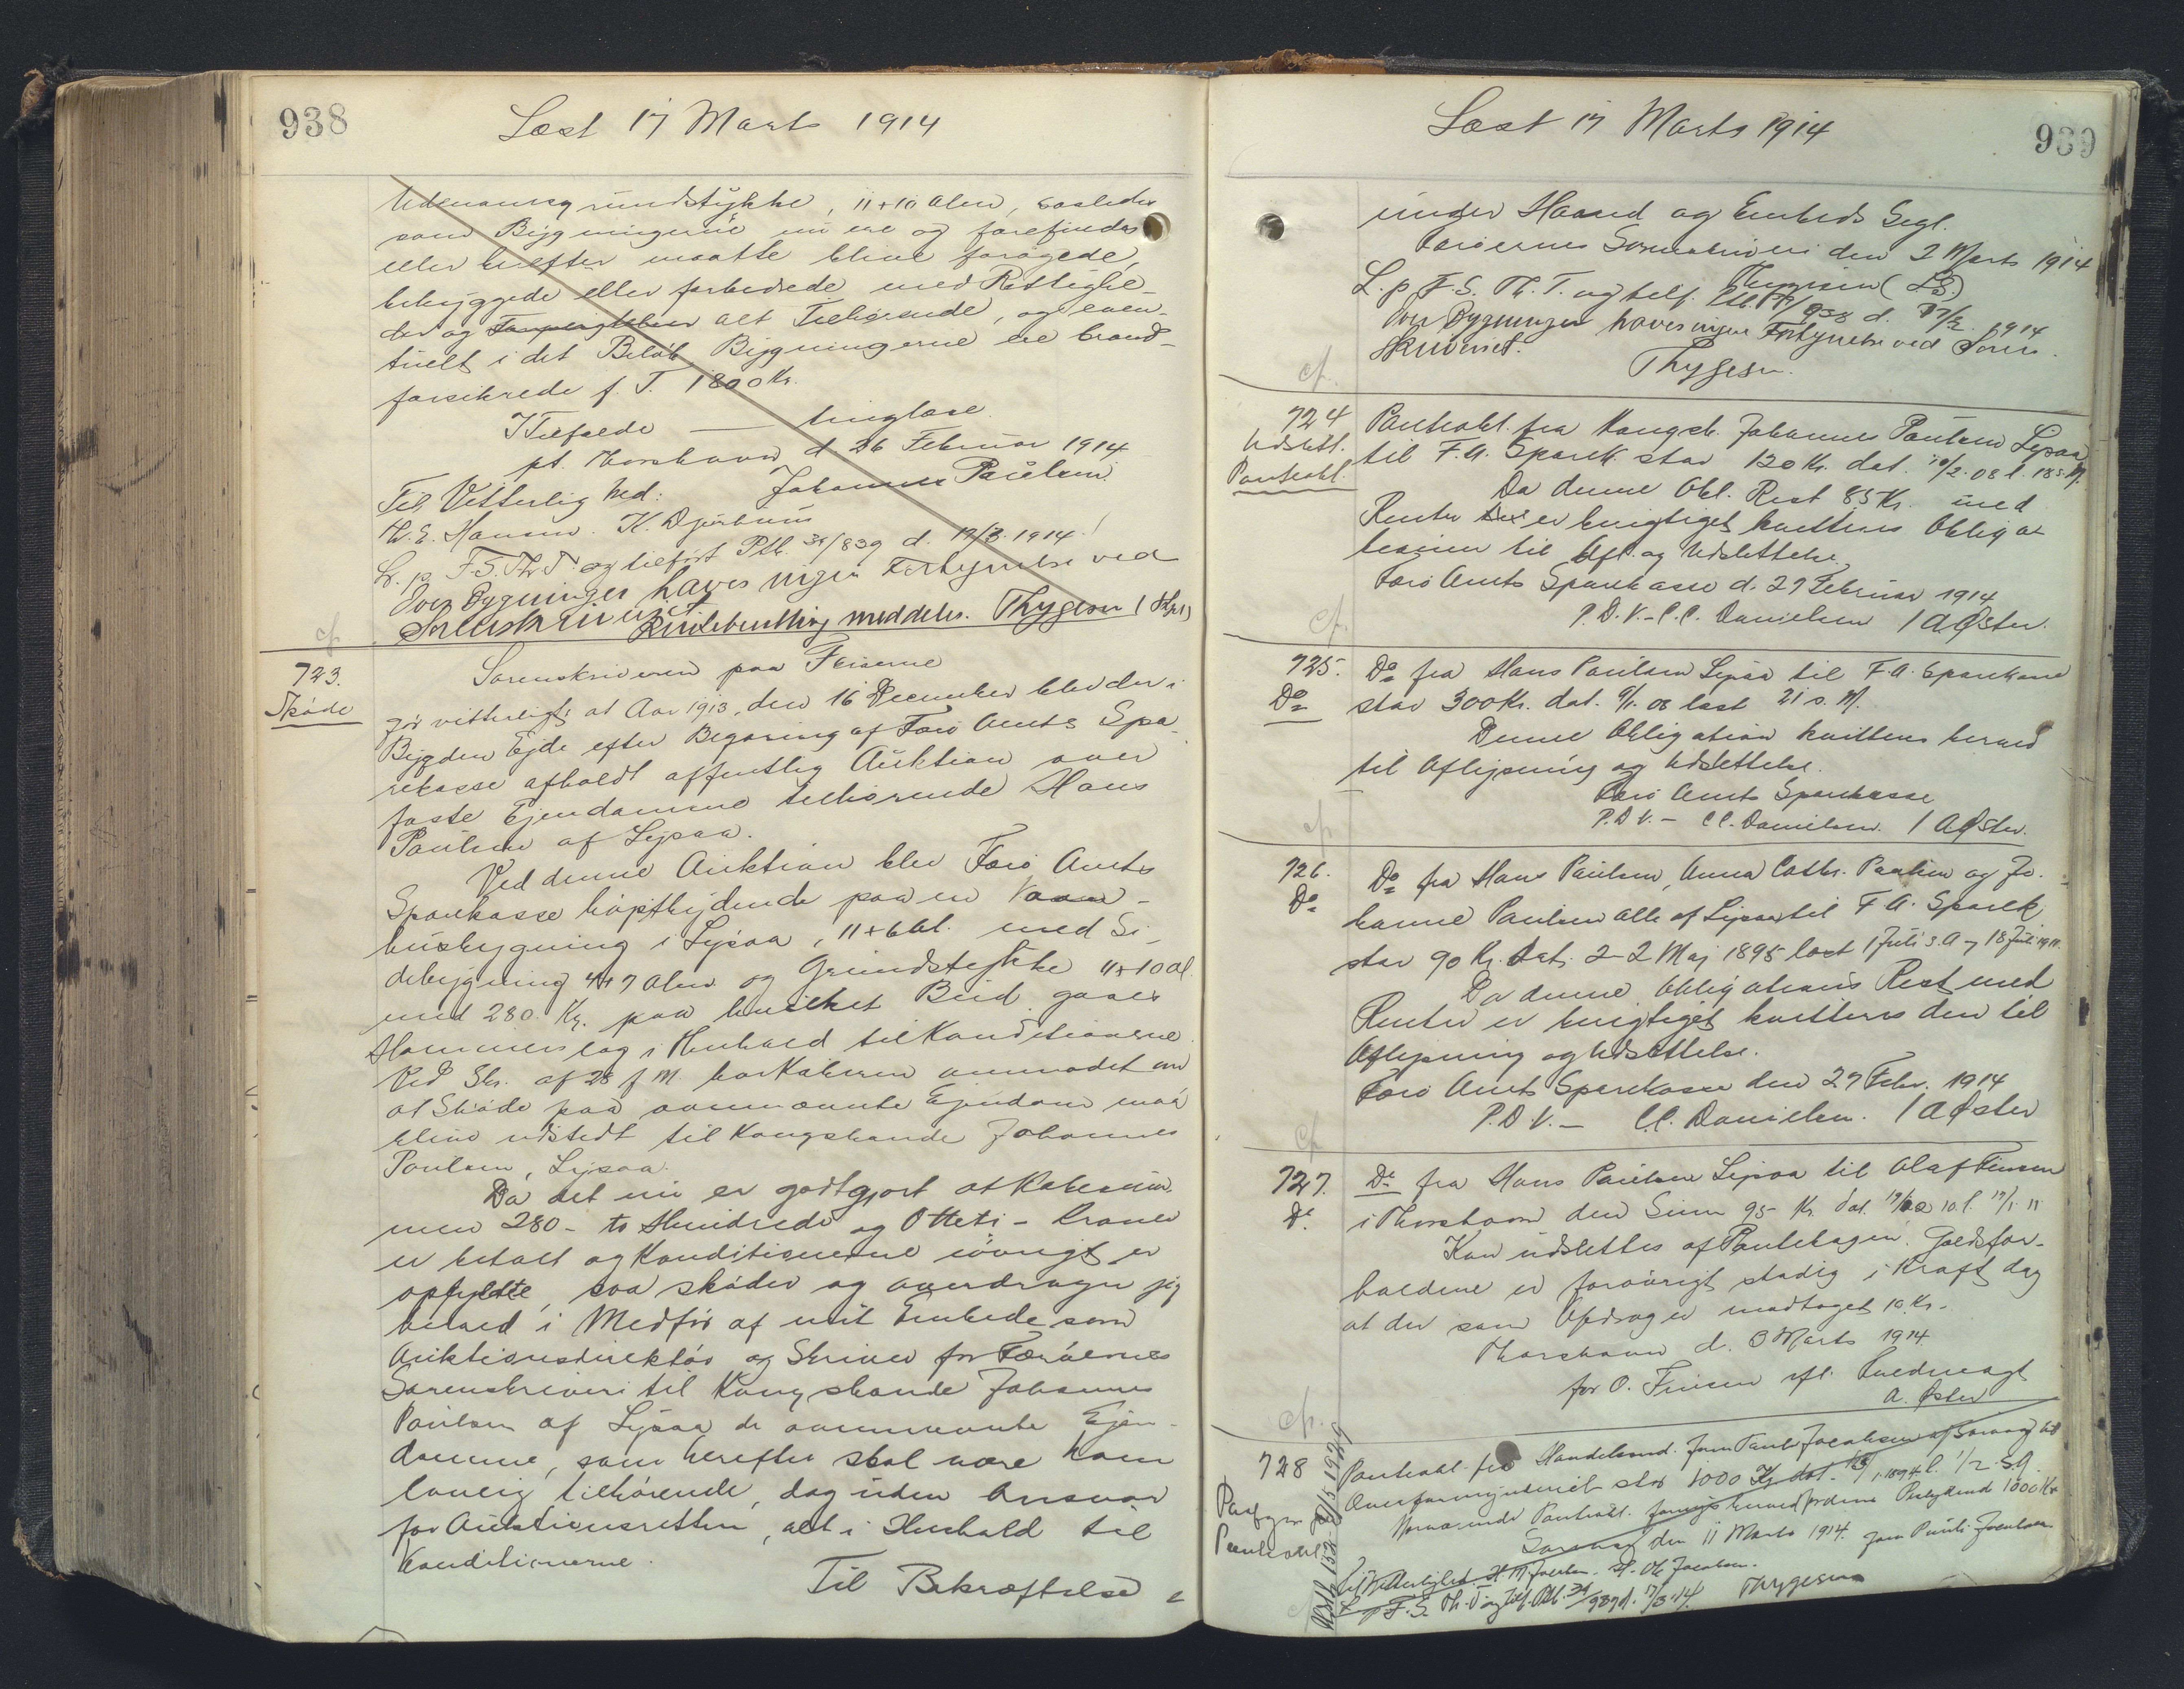 938
Læst 17 Marts 1914
Udenomsgrundstykke, 11+10 Alen, saaledes
som Bygningerne nu ere og forefindes
eller herefter maatte blive forøgede,
bebyggede eller forbedrede med Rettighe-
der og alt Tilhørende, og even-
tuelt i det Beløb Bygningerne ere brand-
forsikrede f. T. 1800 Kr.
I Tilfælde — tinglæse.
pt. Thorshavn d 26 Februar 1914
Johannes Paulsen.
Til Vitterlighed:
H. E. Hansen. K. Djurhuus
L. p. F. S. Th. T og tilført Ptb. d. 17/3. 1914.
Over Bygninger haves ingen Forhyrelse ved
Sorenskriveriet meddeles. Thygesen
cf.
723.
Skøde
Sorenskriveren paa Færøerne
gør vitterligt: at Aar 1913, den 16 December blev der i
Bygden Ejde efter Begæring af Færø Amts Spa-
rekasse afholdt offentlig Auktion over
faste Ejendomme tilhørende Hans
Paulsen af Ljosaa.
Ved denne Auktion blev Færø Amts
Sparekasse højstbydende paa en Vaan-
husbygning i Ljosaa, 11+6 Al. med Si-
debygning 4+7 Alen og Grundstykke 11+10 Al.
med 280 Kr. paa hvilket Bud gaves
Hammerslag i Henhold til Konditionerne.
Ved Skr. af 28 f. M. har Køberen anmodet om
at Skøde paa ovennævnte Ejendom maa
blive udstedt til Kongsbonde Johannes
Paulsen, Ljosaa.
Da det nu er godtgjort at Købesum-
men 280 - to Hundrede og Otteti - Kroner
er betalt og Konditionerne iøvrigt er
opfyldte, saa skøder og overdrager jeg
herved i Medfør af mit Embede som
Auktionsdirektør og Skriver for Færøernes
Sorenskriveri til Kongsbonde Johannes
Paulsen af Ljosaa de ovennævnte Ejen-
domme, som herefter skal være ham
lovlig tilhørende, dog uden Ansvar
for Auktionsretten, alt i Henhold til
Konditionerne.
Til Bekræftelse
939
Læst 17 Marts 1914
under Haand og Embeds Segl.
Færøernes Sorenskriveri den 2 Marts 1914
Thygesen (LS)
L. p. F. S. Th. T. og tilf. d. 17/3 1914
Over Bygningen haves ingen Forhyrelse ved Soren-
skriveriet.
Thygesen.
cf.
724
Udslett.
Panteobl.
Panteobl. fra Kongsb. Johannes Paulsen Ljosaa
til F. A. Sparek. stor 120 Kr. dat. 10/2. 08 l. 18 s. M.
Da denne Obl. Rest 85 Kr. med
Renter er berigtiget kvitteres Obliga-
tionen til Afl. og Udslettelse.
Færø Amts Sparekasse d. 27 Februar 1914
P. D. V. - C. C. Danielsen / A Øster.
cf.
725.
Do
Do fra Hans Paulsen Ljosaa til F. A. Sparekasse
stor 300 Kr. dat. 9/1. 08 læst 21 s. M.
Denne Obligation kvitteres herved
til Aflysning og Udslettelse.
Færø Amts Sparekasse
P. D. V. - C C. Danielsen. / A Øster.
cf.
726.
Do
Do fra Hans Paulsen, Anna Cathr. Paulsen og Jo-
hanne Paulsen alle af Ljosaa til F. A. Sparek.
stor 90 Kr. dat. 22 Maj 1895 læst 1 Juli s. A og 18 Juli
Da denne Obligations Rest med
Renter er berigtiget kvitteres den til
Aflysning og Udslettelse.
Færø Amts Sparekasse den 27 Febr. 1914
P. D. V. - C. C. Danielsen. / A Øster
cf.
727.
Do
Do fra Hans Paulsen Ljosaa til Olaf Finsen
i Thorshavn den Sum 95 Kr. dat. 10. l. 17/1. 11
Kan udslettes af Pantebogen. Gældsfor-
holdene er forøvrigt stadig i Kraft dog
at der som Afdrag er modtaget 10 Kr.
Thorshavn d. 3 Marts 1914
for O. Finsen ifl. Fuldmagt
A. Øster
cf.
728
Panteobl.
Panteobl. fra Handelsmd. Joen Pauli Joensen af Sorvaag til
Overformynderiet stor 1000 Kr dat. 1894 l. 1/2 s. A.
Nærværende Panteobl. fornyes herved for dens Paalydende 1000 Kr
Sorvaag den 11 Marts 1914. Joen Pauli Joensen
Til Vitterlighed.
L. p. F. S. Th. T og tilf. Ptb. 17/3. 14. Thygesen